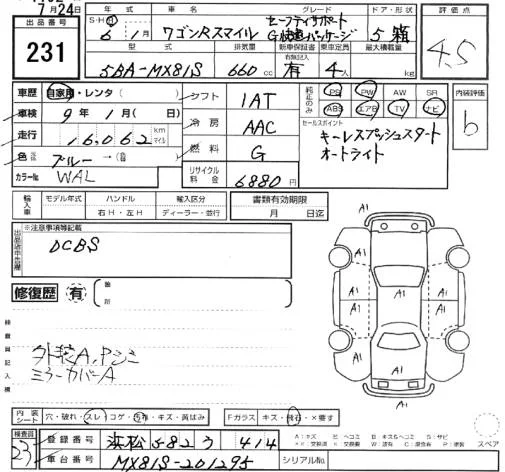 7月24日
出品番号 231
年式 車名 グレード ドア・形状 評価点
S・H・R 6年1月 ワゴンRスマイル セーフティサポート G快適パッケージ 5 箱 4.5
型式 排気量 新車保証書 乗車定員 最大積載量
有無記入
5BA-MX81S 660cc 有 4人 kg
車歴 自家用・レンタ( ) シフト 1AT 純正のみ PS PW AW SR 内装評価
車検 9年1月( 日) 冷房 AAC ABS エアB TV ナビ b
走行 16,062 km マイル 燃料 G セールスポイント
色 ブルー→( ) キーレスプッシュスタート
オートライト
カラーNo. WAL リサイクル料金 6880円
輸入車 モデル年式 ハンドル 輸入区分 書類有効期限
右H・左H ディーラー・並行 月 日迄
※注意事項等記載
DCBS
修復歴 有 箇所
検査員記入欄
外装A,Pジミ
ミラーカバーA
A1
A1
A1
A1
A1
A1
A1
A1
内装シート 穴・破れ・スレ・コゲ・汚れ・キズ・黄ばみ Fガラス キズ・飛石・×要す
A:キズ E:ヘコミ B:キズ&ヘコミ S:サビ
X:交換済 X:交換要 W:波有 C:腐食有 P:塗装 スペア
検査員 23 登録番号 浜松 582 う 414
車台番号 MX81S-201295 シリアルNo.